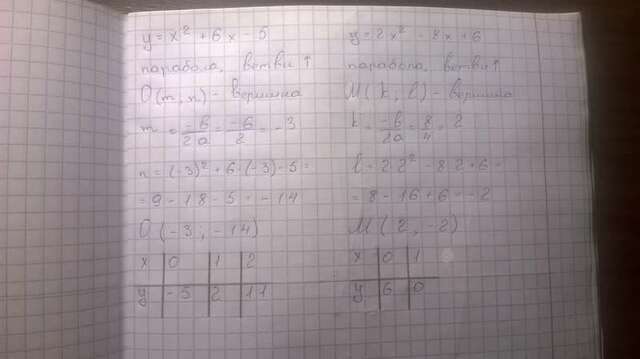 y = x² + 6x - 5
парабола, ветви ↑
O(m; n) - вершина
m = -b/2a = -6/2 = -3
n = (-3)² + 6·(-3) - 5 =
= 9 - 18 - 5 = -14
O(-3; -14)
x | 0 | 1 | 2
y | -5 | 2 | 11
y = 2x² - 8x + 6
парабола, ветви ↑
M(k; l) - вершина
k = -b/2a = 8/4 = 2
l = 2·2² - 8·2 + 6 =
= 8 - 16 + 6 = -2
M(2; -2)
x | 0 | 1
y | 6 | 0